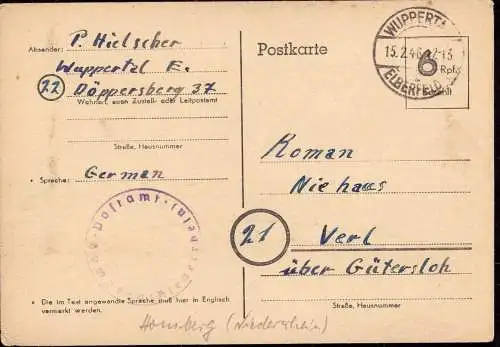 Absender: P. Hielscher
Wuppertal E.
(22) Döppersberg 37
Wohnort, auch Zustell- oder Leitpostamt
Straße, Hausnummer
* Sprache: German
Postamt
* Die im Text angewandte Sprache muß hier in Englisch
vermerkt werden.
Postkarte
WUPPERTAL
15.2.46.12-13
ELBERFELD
6
Rpf
Bezahlt
Roman
Niehaus
21 Verl
über Gütersloh
Straße, Hausnummer
Homberg (Niederrhein)